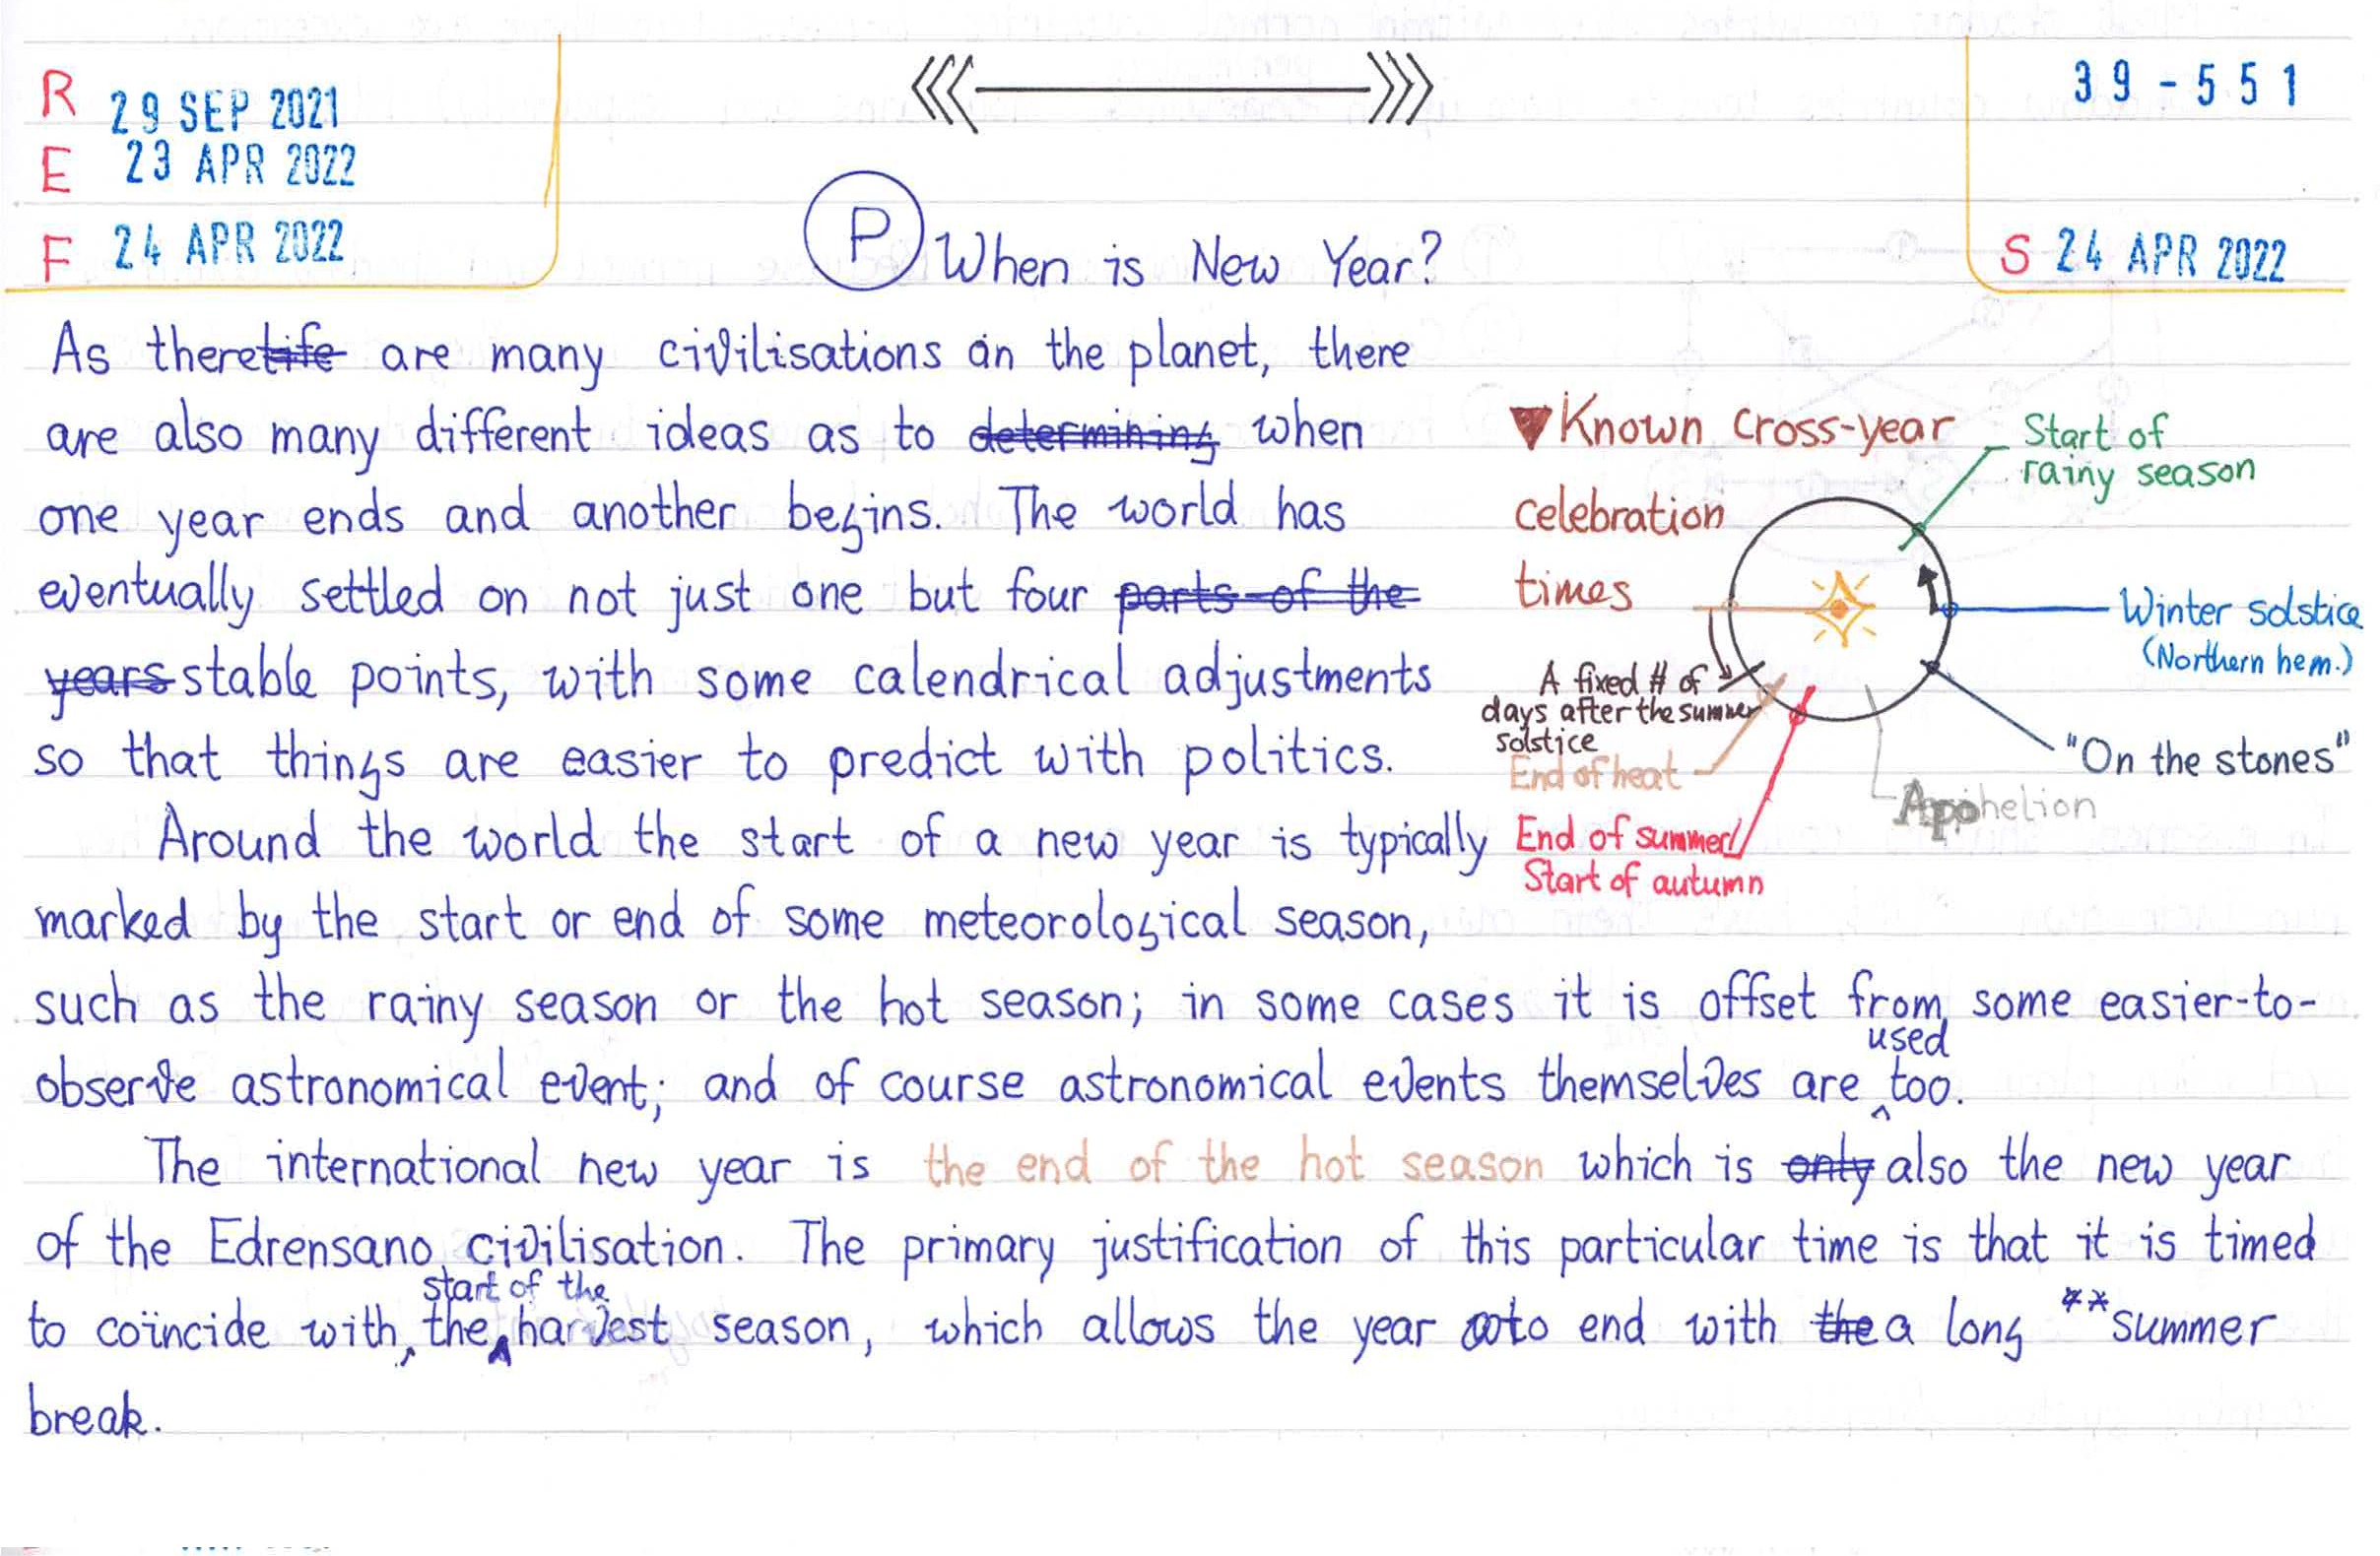 R 29 SEP 2021
E 23 APR 2022
F 24 APR 2022
39-551
S 24 APR 2022
P When is New Year?
As there~~life~~ are many civilisations on the planet, there
are also many different ideas as to ~~determining~~ when
one year ends and another begins. The world has
eventually settled on not just one but four ~~parts of the~~
~~years~~ stable points, with some calendrical adjustments
so that things are easier to predict with politics.
Around the world the start of a new year is typically
marked by the start or end of some meteorological season,
such as the rainy season or the hot season; in some cases it is offset from some easier-to-
observe astronomical event; and of course astronomical events themselves are used too.
The international new year is the end of the hot season which is ~~only~~ also the new year
of the Edrensano civilisation. The primary justification of this particular time is that it is timed
to coïncide with the start of the harvest season, which allows the year to end with ~~the~~ a long **summer
break.
▼Known cross-year
celebration
times
Start of
rainy season
Winter solstice
(Northern hem.)
"On the stones"
Apohelion
A fixed # of
days after the summer
solstice
End of heat
End of summer/
Start of autumn